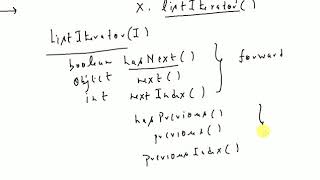 x. listIterator()
ListIterator(I)
boolean hasNext()
Object next()
int nextIndex()
forward
hasPrevious()
previous()
previousIndex()